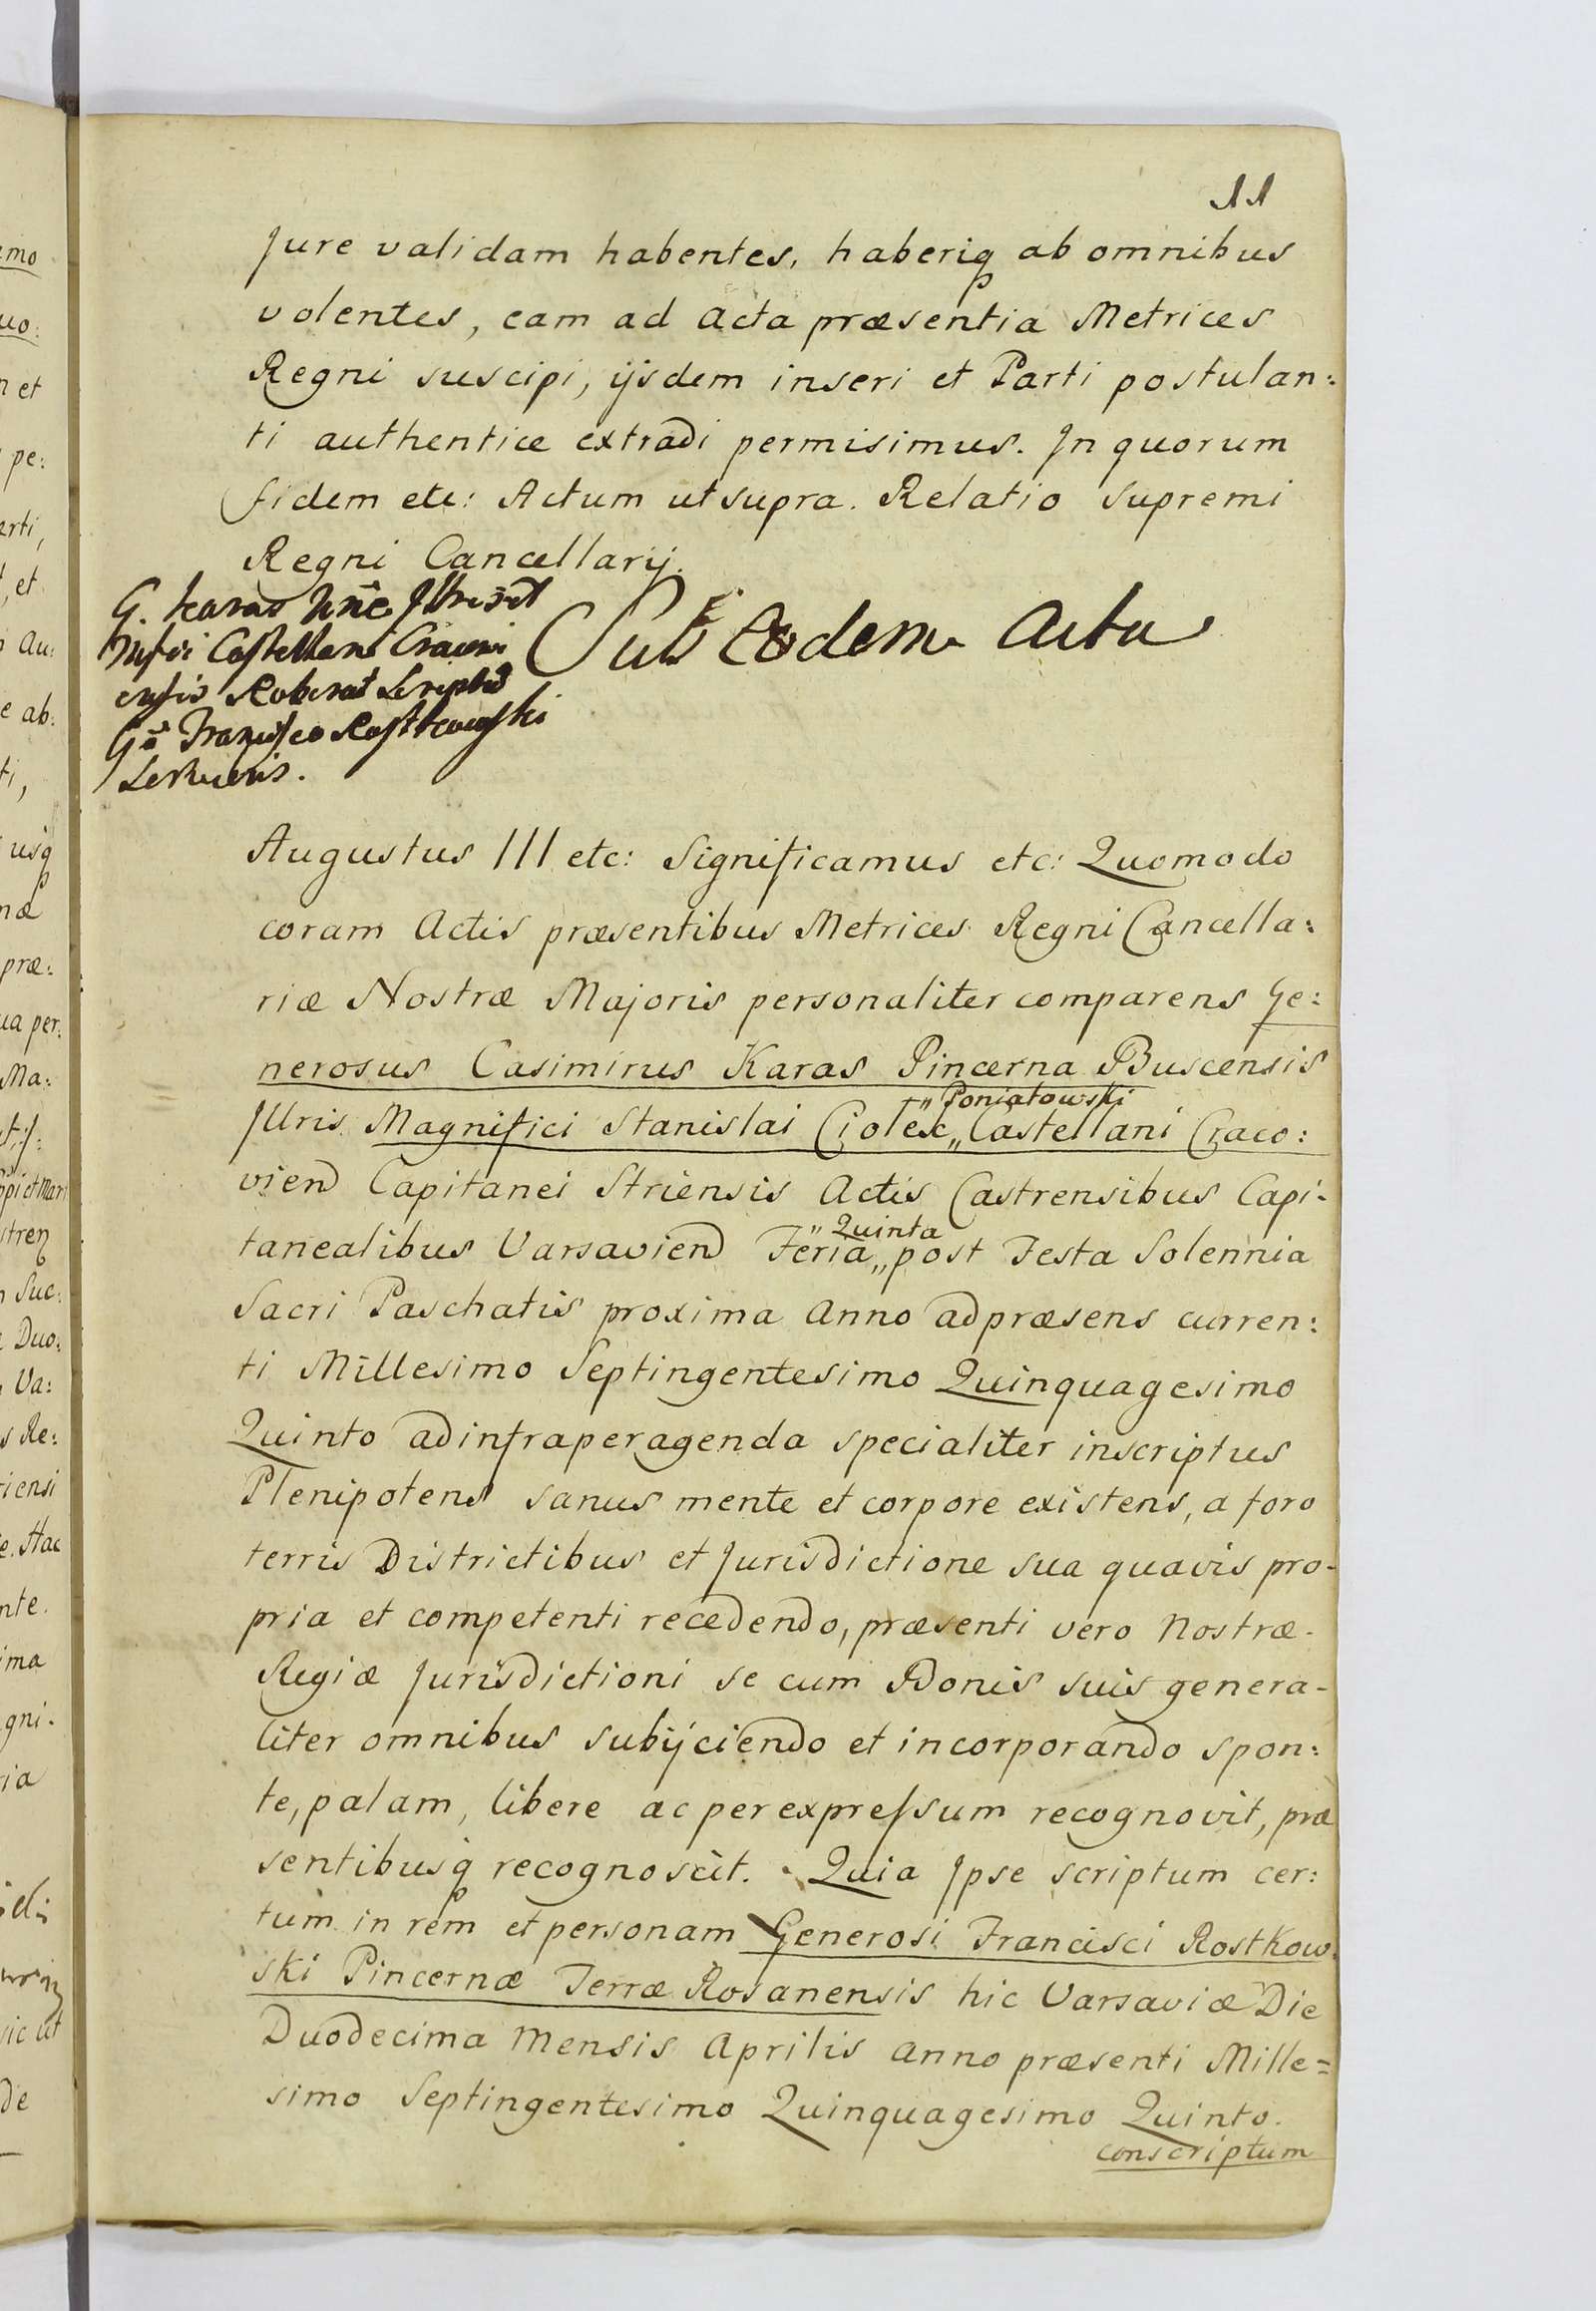 11
Jure validam habentes, haberiq ab omnibus
volentes, eam ad Acta præsentia Metrices
Regni suscipi, ijsdem inseri et Parti postulan:
ti authentice extradi permisimus. In quorum
fidem etc: Actum ut supra. Relatio Supremi
Regni Cancellarij.
G. Karas Nne Illris et
Mgfci Castellani Cracovi
ensis Roborat Scriptum
Go Francisco Rostkowski
Serviens.
Sub Eodem Actu
Augustus III etc: Significamus etc: Quomodo
coram Actis præsentibus Metrices Regni Cancella:
riæ Nostræ Majoris personaliter comparens Ge:
nerosus Casimirus Karas Pincerna Buscensis
" Poniatowski
Illris Magnifici Stanislai Ciolek „ Castellani Craco:
vien Capitanei Striensis Actis Castrensibus Capi-
" Quinta
tanealibus Varsavien Feria „ post Festa Solennia
Sacri Paschatis proxima Anno ad præsens curren:
ti Millesimo Septingentesimo Quinquagesimo
Quinto ad infra peragenda specialiter inscriptus
Plenipotens sanus mente et corpore existens, a foro
terris Districtibus et Jurisdictione sua quavis pro-
pria et competenti recedendo, præsenti vero Nostræ-
Regiæ Jurisdictioni se cum Bonis suis genera-
liter omnibus subijciendo et incorporando spon:
te, palam, libere ac per expressum recognovit, præ
sentibusq recognoscit. Quia Ipse scriptum cer:
tum in rem et personam Generosi Francisci Rostkow.
ski Pincernæ Terræ Rosanensis hic Varsaviæ Die
Duodecima Mensis Aprilis Anno præsenti Mille=
simo Septingentesimo Quinquagesimo Quinto.
conscriptum